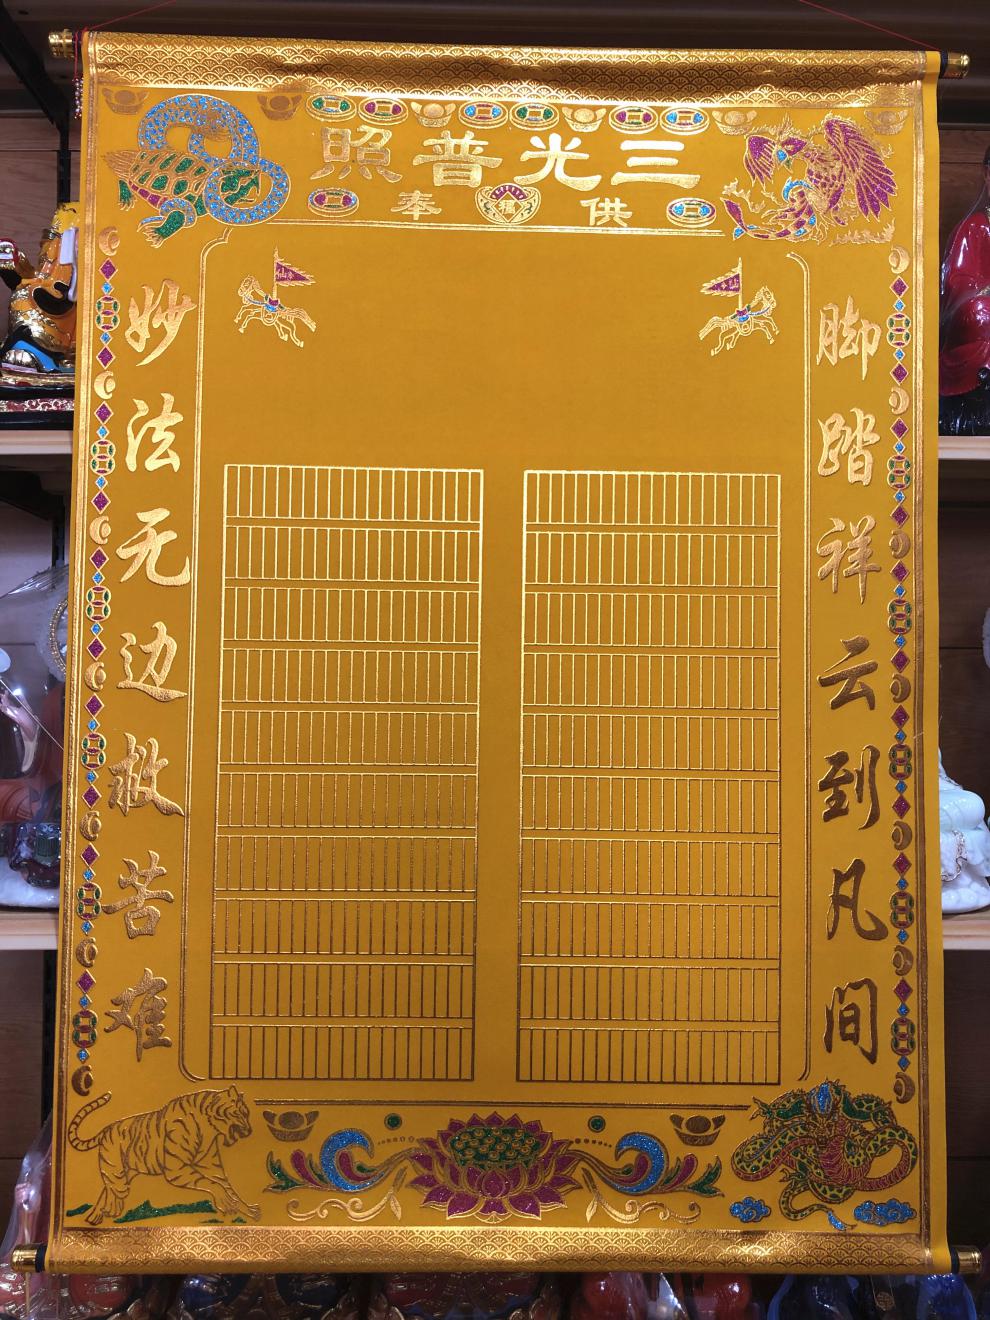 三光普照
供福奉
脚踏祥云到凡间
妙法无边救苦难